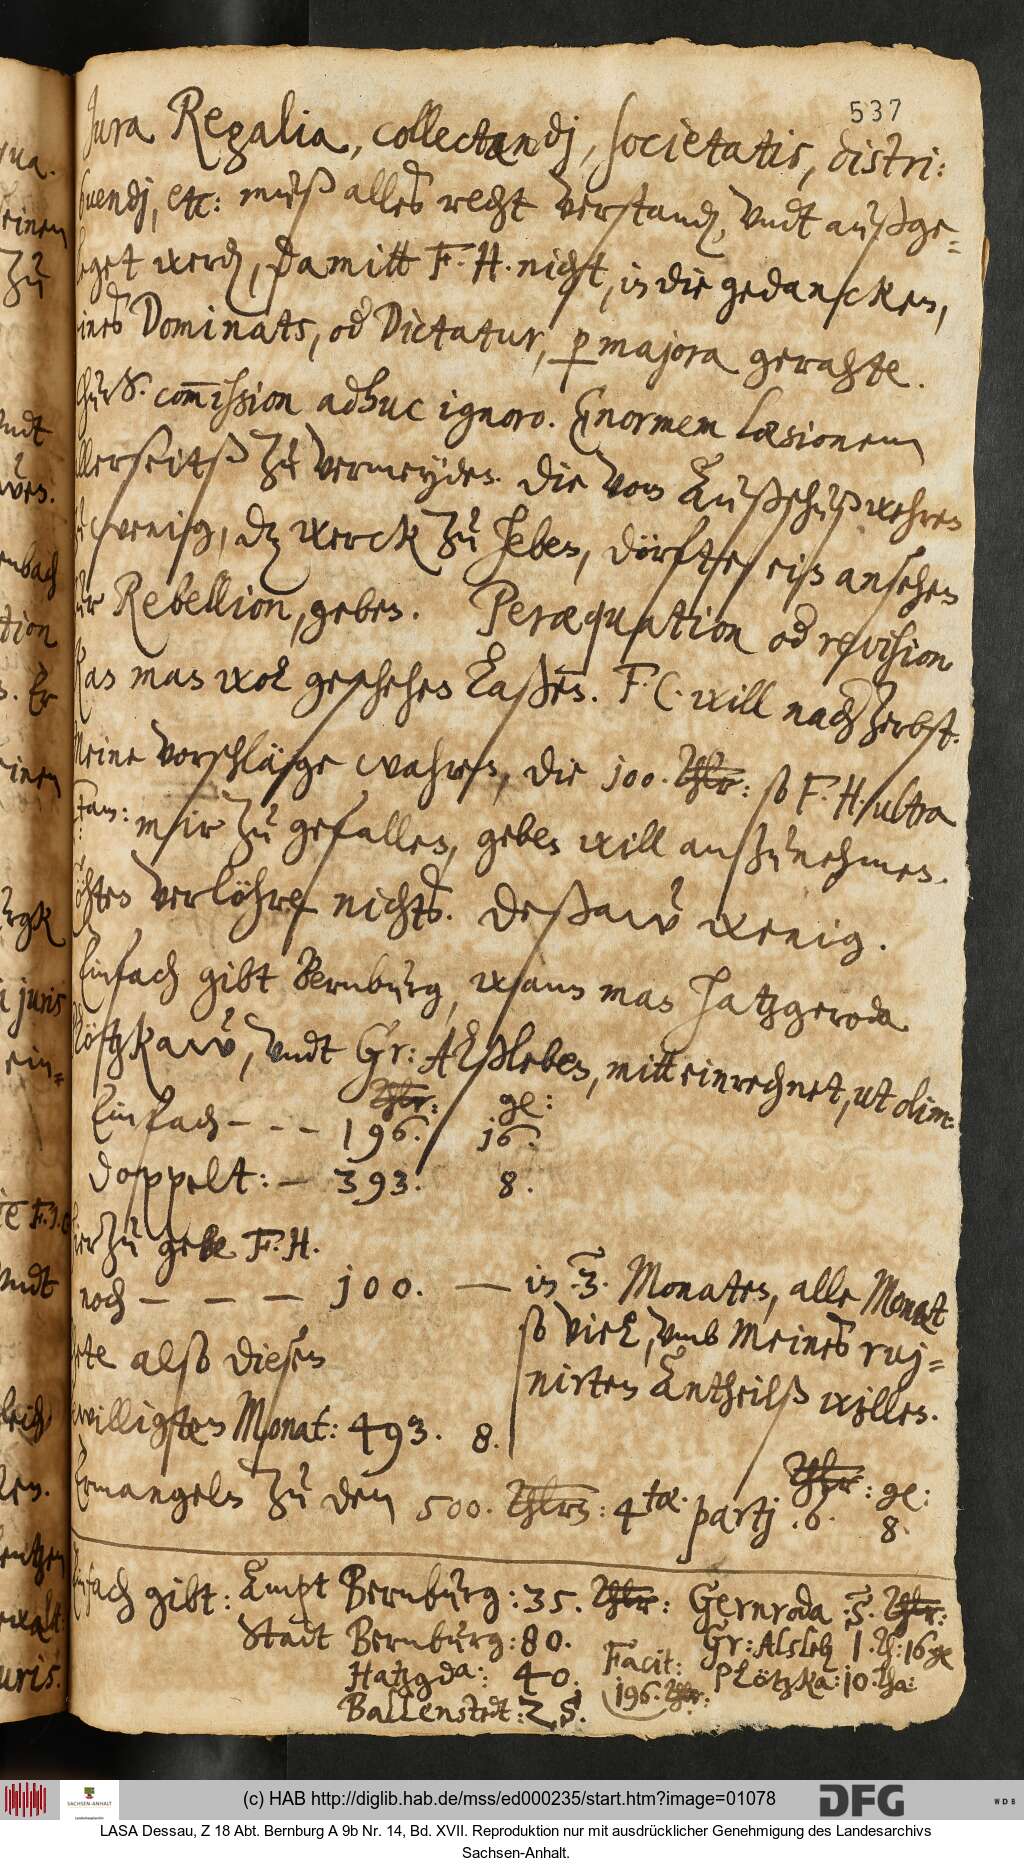 537
Jura Regalia, collectandj, societatis, distri:
buendj, etc: muß alles recht verstanden, vndt außge=
leget werden, damitt F. H. nicht, in die gedancken,
eines Dominats, oder Dictatur, per majora gerahte.
ChurS. commission adhuc ignoro. Enormem læsionem
allerseitß zu vermeyden. Die vom Außschuß wehren
zu wenig, daz werck zu heben, dörften eiß ansehen
zur Rebellion, geben. Peræquation oder revision
kan man wol geschehen laßen. F. C. will nach Zerbst.
Meine vorschläge wahren, die 100. Thlr: so F. H. ultra
tan: mir zu gefallen, geben will anzunehmen.
Cöhten verlöhre nichts. Deßaw wenig.
Einfach gibt Bernburg, wann man Hatzgeroda
Plötzkaw, vndt Gr: Alßleben, mitt einrechnet, ut olim:
Thlr: ge:
Einfach - - - 196. 16.
Doppelt: - 393. 8.
hierzu gebe F. H.
noch - - - 100. - in 3. Monaten, alle Monat
so viel, vmb meines ruj=
nirten Antheilß willen.
hette also diesen
bewilligten Monat: 493. 8.
Ermangeln zu dem 500. Thlrn: 4tæ. partj Thlr: 6. ge: 8.
Einfach gibt: Ampt Bernburg: 35. Thlr: Gernroda: 5. Thlr:
Stadt Bernburg: 80. Gr: Alsleb 1. Th: 16 ge
Hatzgda: 40. Facit: Plötzka: 10. tha:
Ballenstedt: 25. 196. Thlr:
(c) HAB http://diglib.hab.de/mss/ed000235/start.htm?image=01078
SACHSEN-ANHALT
DFG
WDB
LASA Dessau, Z 18 Abt. Bernburg A 9b Nr. 14, Bd. XVII. Reproduktion nur mit ausdrücklicher Genehmigung des Landesarchivs
Sachsen-Anhalt.